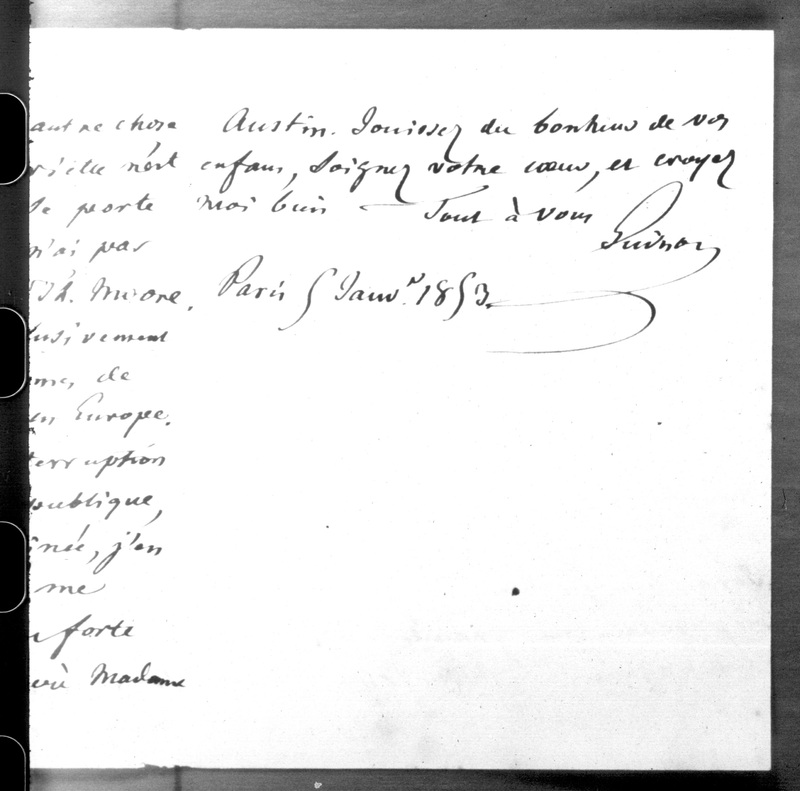 autre chose
si elle n'est
se porte
n'ai pas
Th. Moore.
lusivement
mes de
en Europe.
terruption
publique,
inée, j'en
me
forte
Madame
Austin. Jouissez du bonheur de vos
enfans, soignez votre cœur, et croyez
moi bien — Tout à vous
Guizot
Paris 5 Janvr. 1853.